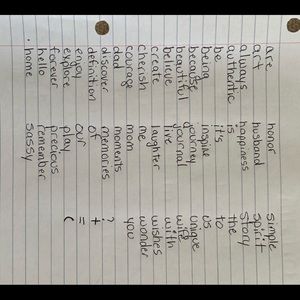 are
art
always
authentic
be
being
because
beautiful
believe
create
cherish
courage
dad
discover
definition
enjoy
explore
forever
hello
home
honor
husband
happiness
is
it's
inspire
journey
journal
live
laughter
me
mom
moments
memories
of
our
play
precious
remember
sassy
simple
spirit
story
the
to
us
unique
wife
with
wishes
wonder
you
?
+
=